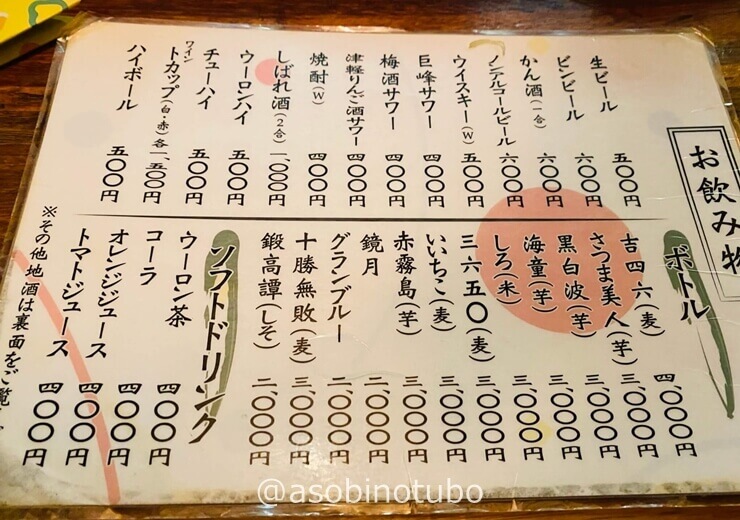 お飲み物
生ビール 五〇〇円
ビンビール 六〇〇円
かん酒(一合) 六〇〇円
ノンアルコールビール 六〇〇円
ウイスキー(W) 五〇〇円
巨峰サワー 四〇〇円
梅酒サワー 四〇〇円
津軽りんご酒サワー 四〇〇円
焼酎(W) 四〇〇円
しばれ酒(2合) 一、〇〇〇円
ウーロンハイ 五〇〇円
チューハイ 五〇〇円
ワイン
トカップ(白・赤) 各一、五〇〇円
ハイボール 五〇〇円
ボトル
吉四六(麦) 四、〇〇〇円
さつま美人(芋) 三、〇〇〇円
黒白波(芋) 三、〇〇〇円
海童(芋) 三、〇〇〇円
しろ(米) 三、〇〇〇円
三六五〇(麦) 三、〇〇〇円
いいちこ(麦) 三、〇〇〇円
赤霧島(芋) 三、〇〇〇円
鏡月 二、〇〇〇円
グランブルー 二、〇〇〇円
十勝無敗(麦) 三、〇〇〇円
鍛高譚(しそ) 二、〇〇〇円
ソフトドリンク
ウーロン茶 四〇〇円
コーラ 四〇〇円
オレンジジュース 四〇〇円
トマトジュース 四〇〇円
※その他地酒は裏面をご覧
@asobinotubo